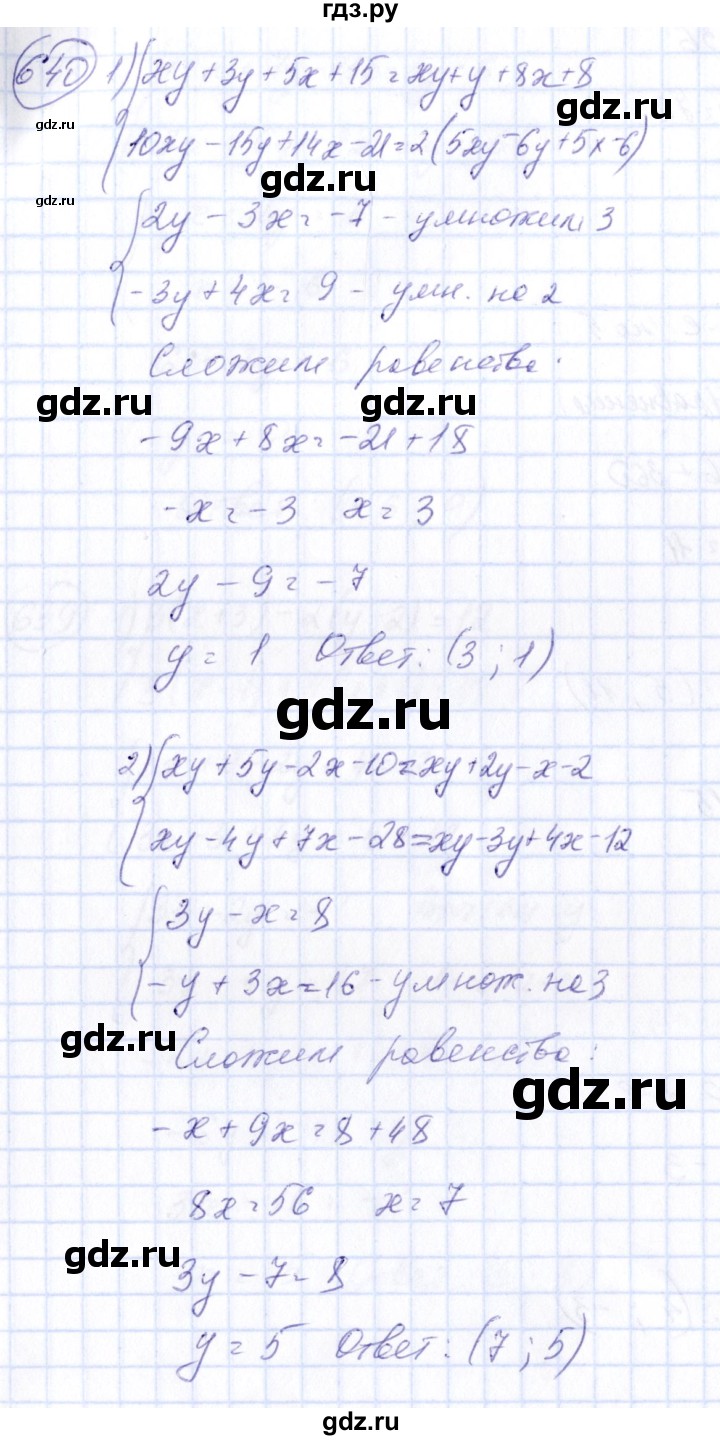 гдз.ру
640 1) { xy + 3y + 5x + 15 = xy + y + 8x + 8
gdz.ru
10xy - 15y + 14x - 21 = 2 (5xy - 6y + 5x - 6)
gdz.ru
gdz.ru
{ 2y - 3x = -7 - умножим 3
-3y + 4x = 9 - умн. на 2
Сложим равенства.
gdz.ru gdz.ru
-9x + 8x = -21 + 18
-x = -3 x = 3
2y - 9 = -7
y = 1 Ответ: (3; 1)
gdz.ru
2) { xy + 5y - 2x - 10 = xy + 2y - x - 2
xy - 4y + 7x - 28 = xy - 3y + 4x - 12
{ 3y - x = 8
-y + 3x = 16 - умнож. на 3
gdz.ru
Сложим равенства:
gdz.ru
-x + 9x = 8 + 48
8x = 56 x = 7
gdz.ru
3y - 7 = 8
y = 5 Ответ: (7; 5)
gdz.ru